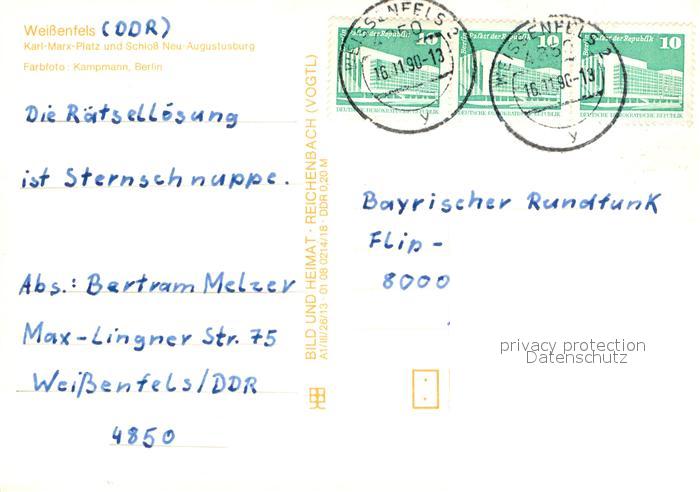 Weißenfels (DDR)
Karl-Marx-Platz und Schloß Neu-Augustusburg
Farbfoto: Kampmann, Berlin
Die Rätsellösung
ist Sternschnuppe.
Abs.: Bertram Melzer
Max-Lingner Str. 75
Weißenfels/DDR
4850
BILD UND HEIMAT · REICHENBACH (VOGTL)
A1/III/26/13 · 01 08 0214/18 · DDR 0,20 M
WEISSENFELS 2
4850
16.11.90-13
y
10
Palast der Republik
10
WEISSENFELS 2
4850
16.11.90-13
y
Berlin Palast der Republik
10
DEUTSCHE DEMOKRATISCHE REPUBLIK
Bayrischer Rundfunk
Flip-
8000
privacy protection
Datenschutz